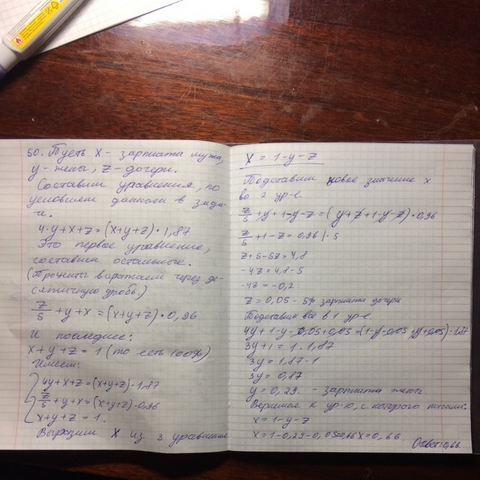 50. Пусть x - зарплата мужа,
y - жены, z - дочери.
Составим уравнения, по
условиям данным в зада-
че.
4·y+x+z=(x+y+z)·1,87
Это первое уравнение,
составим остальные.
(Проценты выражаем через де-
сятичную дробь)
z/5+y+x=(x+y+z)·0,96
И последнее:
x+y+z=1 (то есть 100%)
Имеем:
4y+x+z=(x+y+z)·1,87
z/5+y+x=(x+y+z)·0,96
x+y+z=1.
Выразим x из 3 уравнения
x=1-y-z
Подставим новое значение x
во 2 ур-е.
z/5+y+1-y-z=(y+z+1-y-z)·0,96
z/5+1-z=0,96|·5
z+5-5z=4,8
-4z=4,8-5
-4z=-0,2
z=0,05 - зарплата дочери
Подставим всё в 1 ур-е.
3y+1=1·1,87
3y=1,87-1
3y=0,87
y=0,29 - зарплата жены
Вернемся к ур-ю, с которого начали:
x=1-y-z
x=1-0,29-0,05 x=0,66
Ответ: 0,66